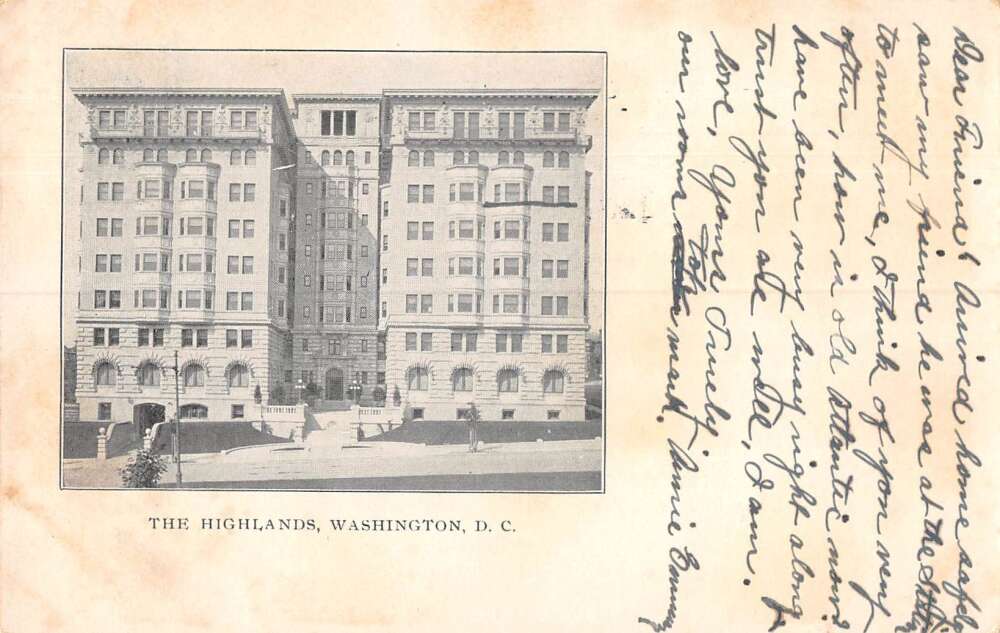 THE HIGHLANDS, WASHINGTON, D. C.
Dear Friend, Arrived home safely
saw my friend he was at the
to meet me, I think of you very
often, how is old Atlantic
have been very busy right along
trust you are well, I am.
love, Yours Truely,
our rooms mark. Annie